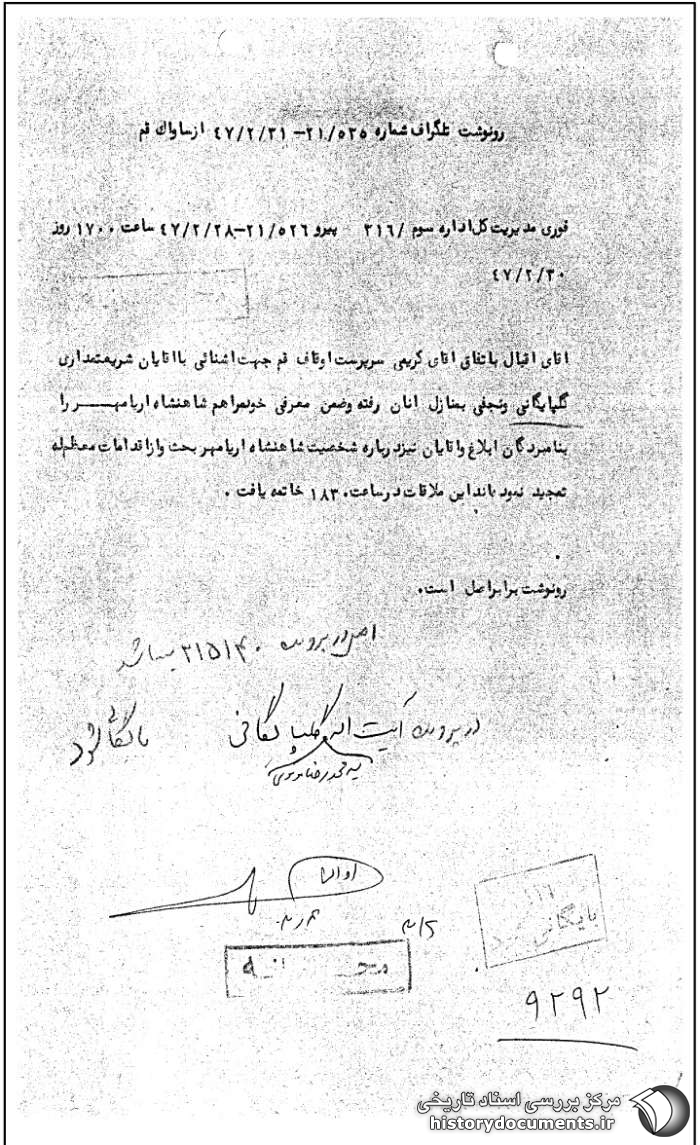 رونوشت تلگراف شماره ۲۱/۵۲۵-۴۷/۲/۳۱ ازساواك قم
فوری مدیریت کل اداره سوم /۲۱۶ پیرو ۲۱/۵۲۶-۴۷/۲/۲۸ ساعت ۱۷۰۰ روز
۴۷/۲/۳۰
اقای اقبال باتفاق اقای کریمی سرپرست اوقاف قم جهت اشنائی با اقایان شریعتمداری
گلپایگانی ونجفی بمنازل انان رفته وضمن معرفی خود مراهم شاهنشاه اریامهر را
بنامبردگان ابلاغ واقایان نیزدرباره شخصیت شاهنشاه اریامهر بحث وازاقدامات معظم‌له
تمجید نموده‌اند این ملاقات درساعت ۱۸۳۰ خاتمه یافت .
رونوشت برابراصل است.
اصل در پرونده ۲۱۵۱۴۰ میباشد
در پرونده آیت اله گلپایگانی بایگانی شود
سید محمد رضا موسوی
۳/۵
بایگانی
محرمانه
۹۲۹۲
مرکز بررسی اسناد تاریخی
historydocuments.ir